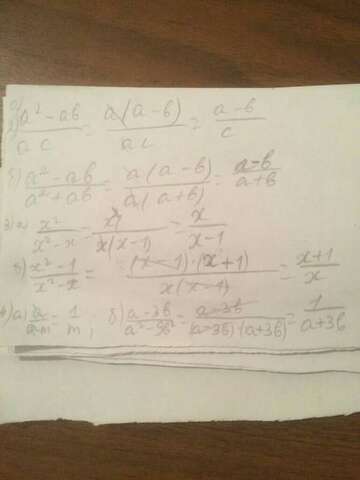 а) (a² - ab)/(ac) = a(a - b)/(ac) = (a - b)/c
б) (a² - ab)/(a² + ab) = a(a - b)/(a(a + b)) = (a - b)/(a + b)
3) а) x²/(x² - x) = x²/(x(x - 1)) = x/(x - 1)
б) (x² - 1)/(x² - x) = ((x - 1)·(x + 1))/(x(x - 1)) = (x + 1)/x
4) а) a/(am) = 1/m; б) (a - 3b)/(a² - 9b²) = (a - 3b)/((a - 3b)·(a + 3b)) = 1/(a + 3b)